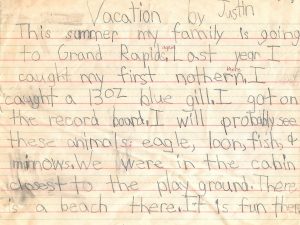 Vacation by Justin
This summer my family is going
to Grand Rapids. Last year I
caught my first nothern. I
caught a 13oz blue gill. I got on
the record board. I will probably see
these animals: eagle, loon, fish, &
minnows. We were in the cabin
closest to the play ground. There
is a beach there. It is fun there